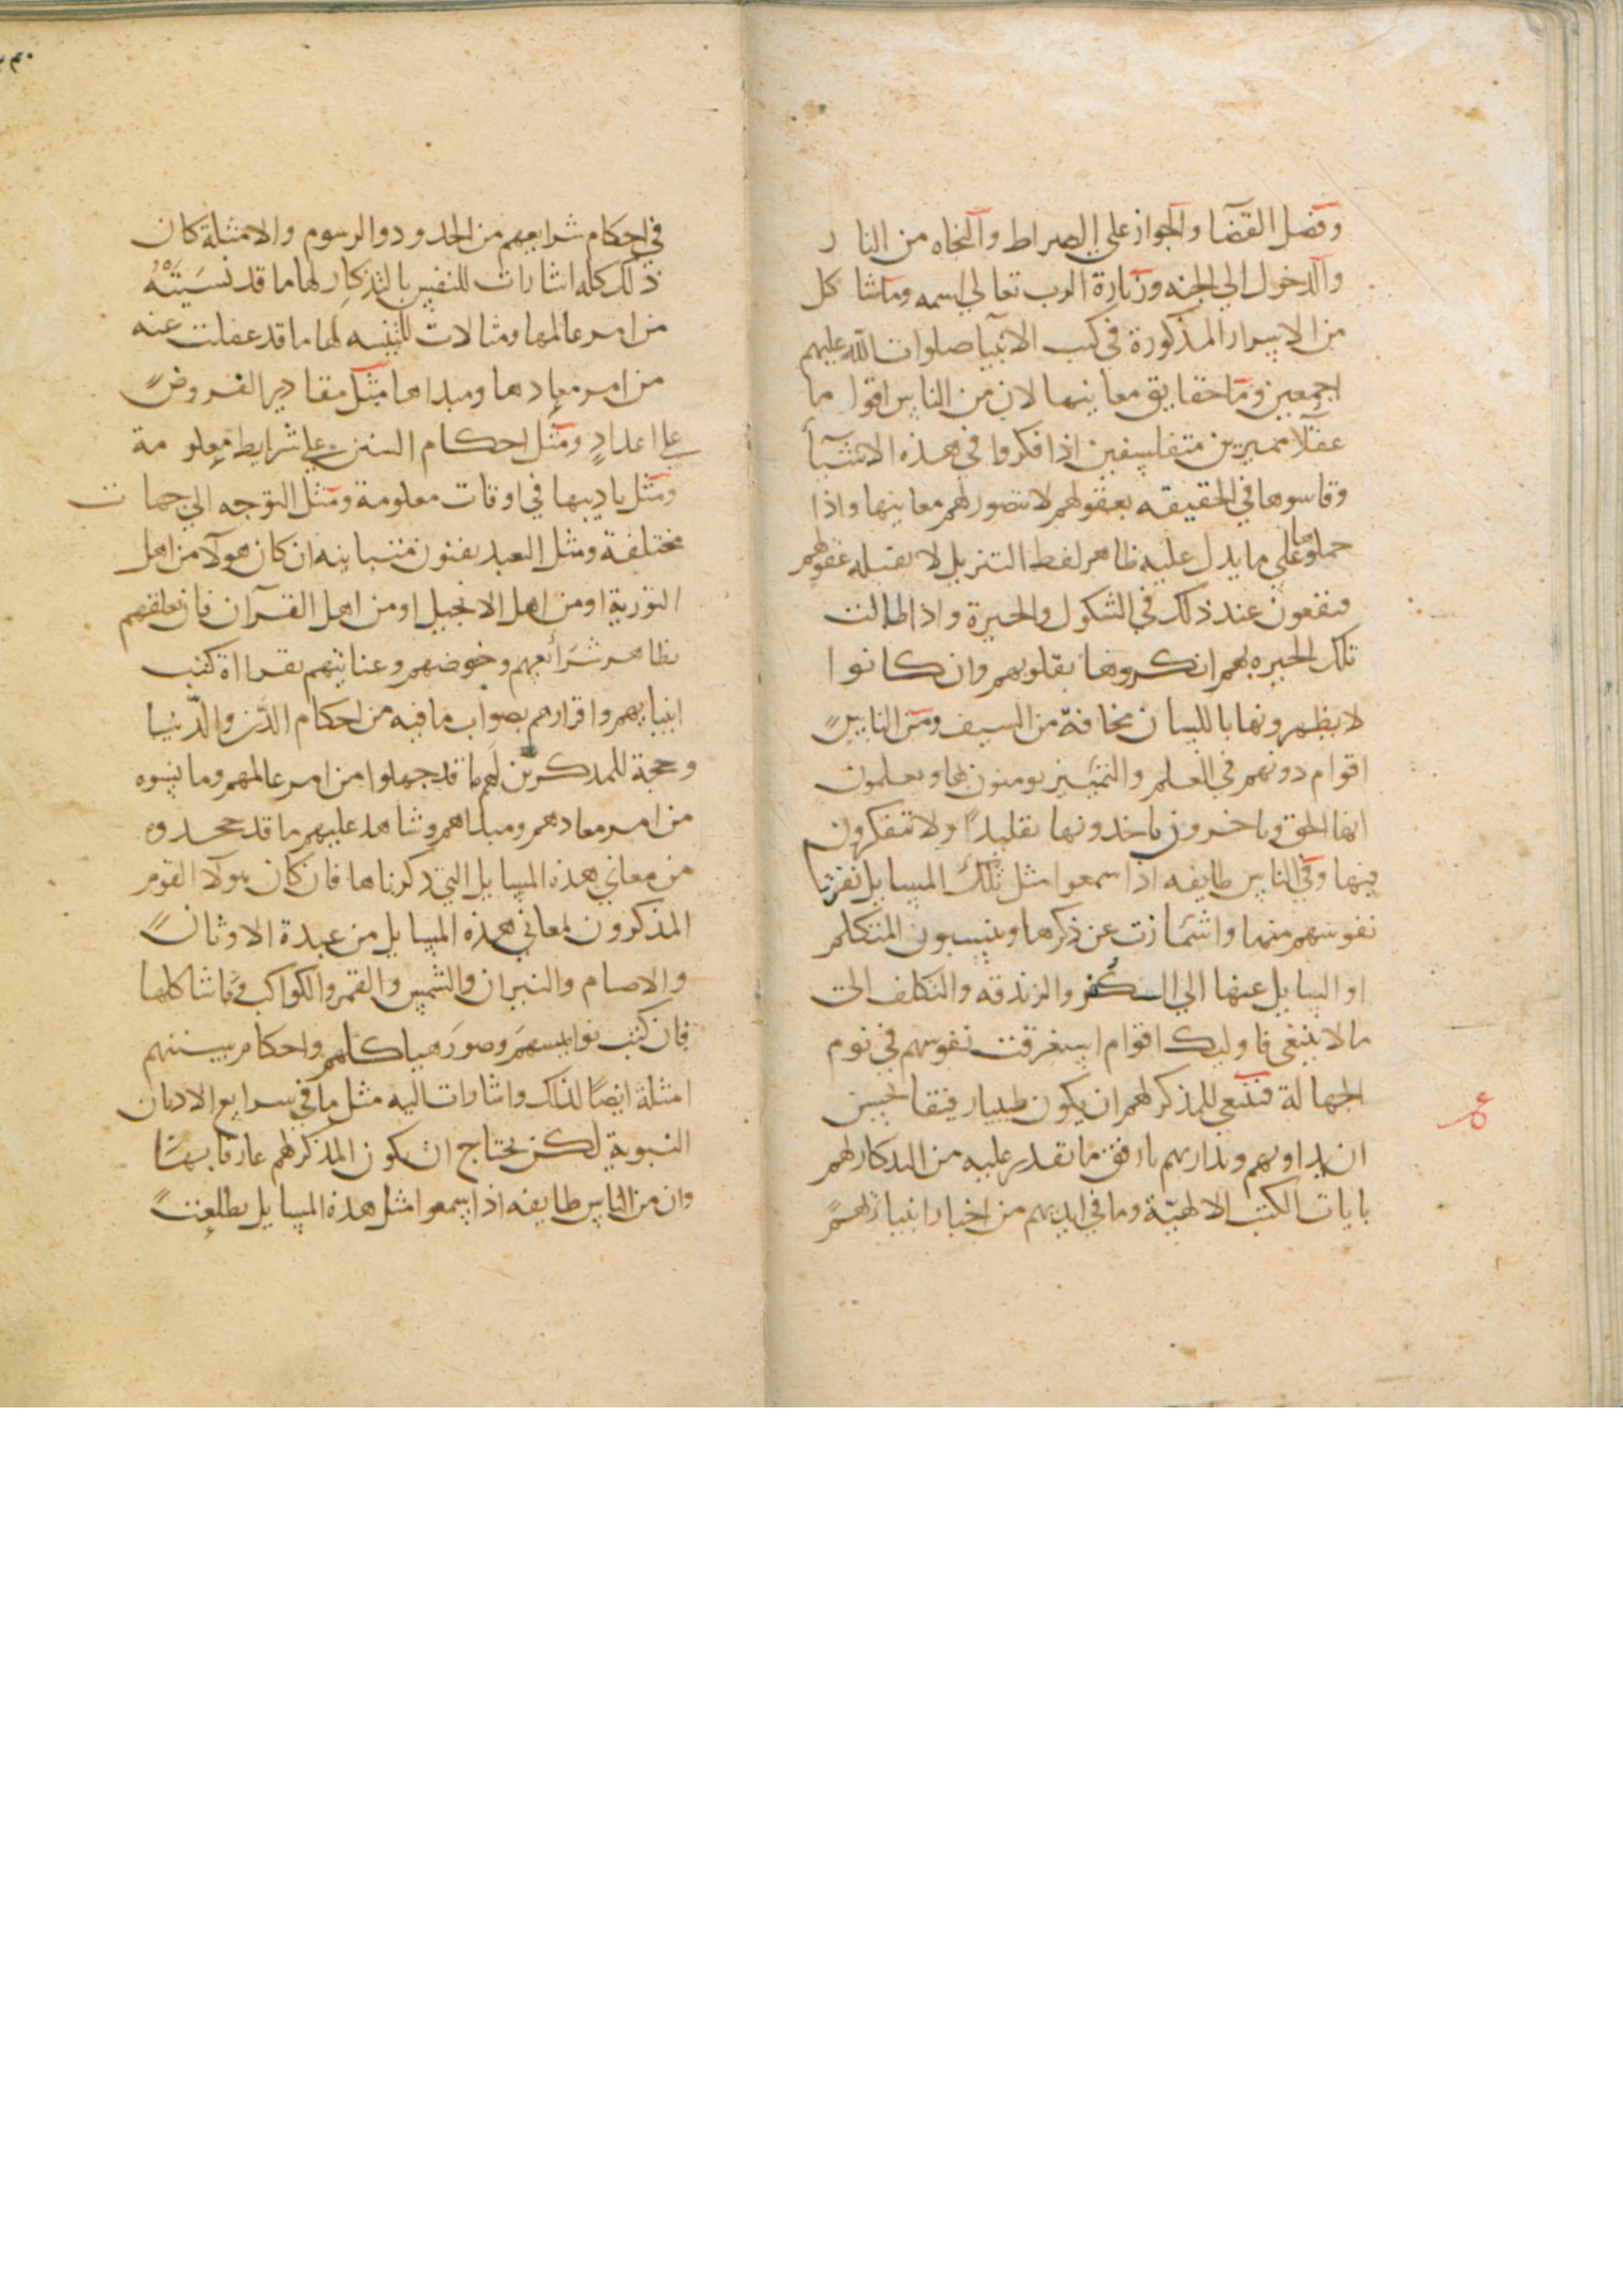 وفصل القضا والجواز علي الصراط والنجاه من النار
والدخول الي الجنه وزيارة الرب تعالي اسمه وما شاكل
من الاسرار المذكورة في كتب الانبيا صلوات الله عليهم
اجمعين وما حقايق معانيها لان من الناس اقواما
عقلا مميزين متفلسفين اذا فكروا في هذه الاشيا
وقاسوها في الحقيقه بعقولهم لا تتصور لهم معانيها واذا
حملوها علي ما يدل عليه ظاهر لفظ التنزيل لا تقبله عقولهم
فيقعون عند ذلك في الشكوك والحيرة واذا طالت
تلك الحيره بهم انكروها بقلوبهم وان كانوا
لا يظهرونها باللسان مخافة من السيف ومن الناس
اقوام دونهم في العلم والتمييز يومنون بها ويعلمون
انها الحق وياخرون ياخدونها تقليدا ولا يتفكرون
فيها وفي الناس طايفه اذا سمعوا مثل تلك المسايل نفرت
نفوسهم منها واشمازت عن ذكرها وينسبون المتكلم
او السايل عنها الي الكفر والزندقه والتكلف الي
ما لا ينبغي فاوليك اقوام استغرقت نفوسهم في نوم
الجهالة فينبغي للمذكر لهم ان يكون طبيبا رفيقا يحسن
ان يداويهم ويداريهم بارفق ما يقدر عليه من التدكار لهم
بايات الكتب الالهية وما في ايديهم من اخبار انبياءهم
في احكام شرايعهم من الحدود والرسوم والامثلة كان
ذلك كله اشارات للنفس بالتذكار لها ما قد نسيته
من امر عالمها ومثالات للتنبيه لها ما قد غفلت عنه
من امر معادها ومبداها مثل مقادير الفروض
علي اعداد ومثل احكام السنن علي شرايط معلومة
ومثل تاديبها في اوقات معلومة ومثل التوجه الي جهات
مختلفة ومثل التعبد بفنون متباينه ان كان هولآ من اهل
التورية او من اهل الانجيل او من اهل القرآن فان تعلقهم
بظاهر شرائعهم وخوضهم وعنايتهم بقراة كتب
انبيايهم واقرارهم بصواب ما فيه من احكام الدين والدنيا
وحجة للمدكرين لهم ما قد جهلوا من امر عالمهم وما نسوه
من امر معادهم ومبداهم وشاهد عليهم ما قد جحدوه
من معاني هذه المسايل التي دكرناها فان كان هولآ القوم
المذكرون لمعاني هذه المسايل من عبدة الاوثان
والاصام والنيران والشمس والقمر والكواكب وما شاكلها
فان كتب نواميسهم وصور هياكلهم واحكام سننهم
امثلة ايضا لذلك واشارات اليه مثل ما في سرايع الاديان
النبوية لكن يحتاج ان يكون المذكر لهم عارفا بها
وان من الناس طايفه اذا سمعوا مثل هذه المسايل تطلعت